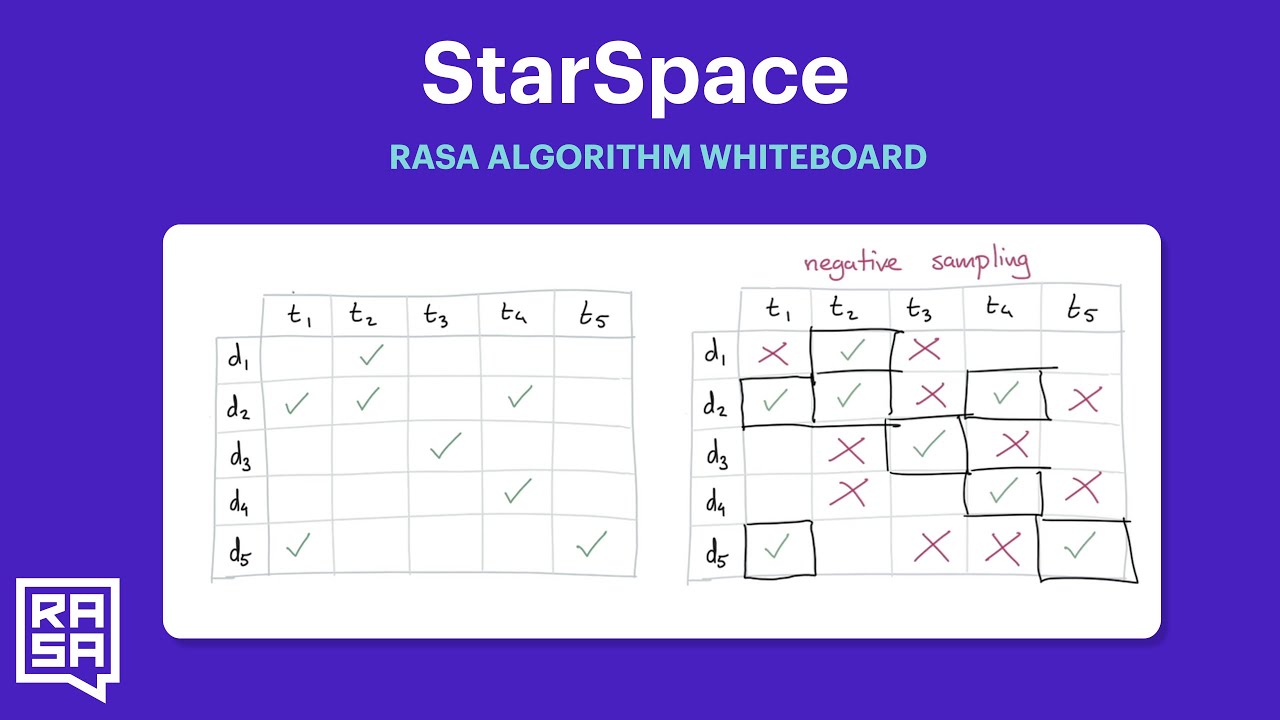 StarSpace
RASA ALGORITHM WHITEBOARD
t1 t2 t3 t4 t5
d1 ✓
d2 ✓ ✓ ✓
d3 ✓
d4 ✓
d5 ✓ ✓
negative sampling
t1 t2 t3 t4 t5
d1 ✗ ✓ ✗
d2 ✓ ✓ ✗ ✓ ✗
d3 ✗ ✓ ✗
d4 ✗ ✓ ✗
d5 ✓ ✗ ✗ ✓
RASA